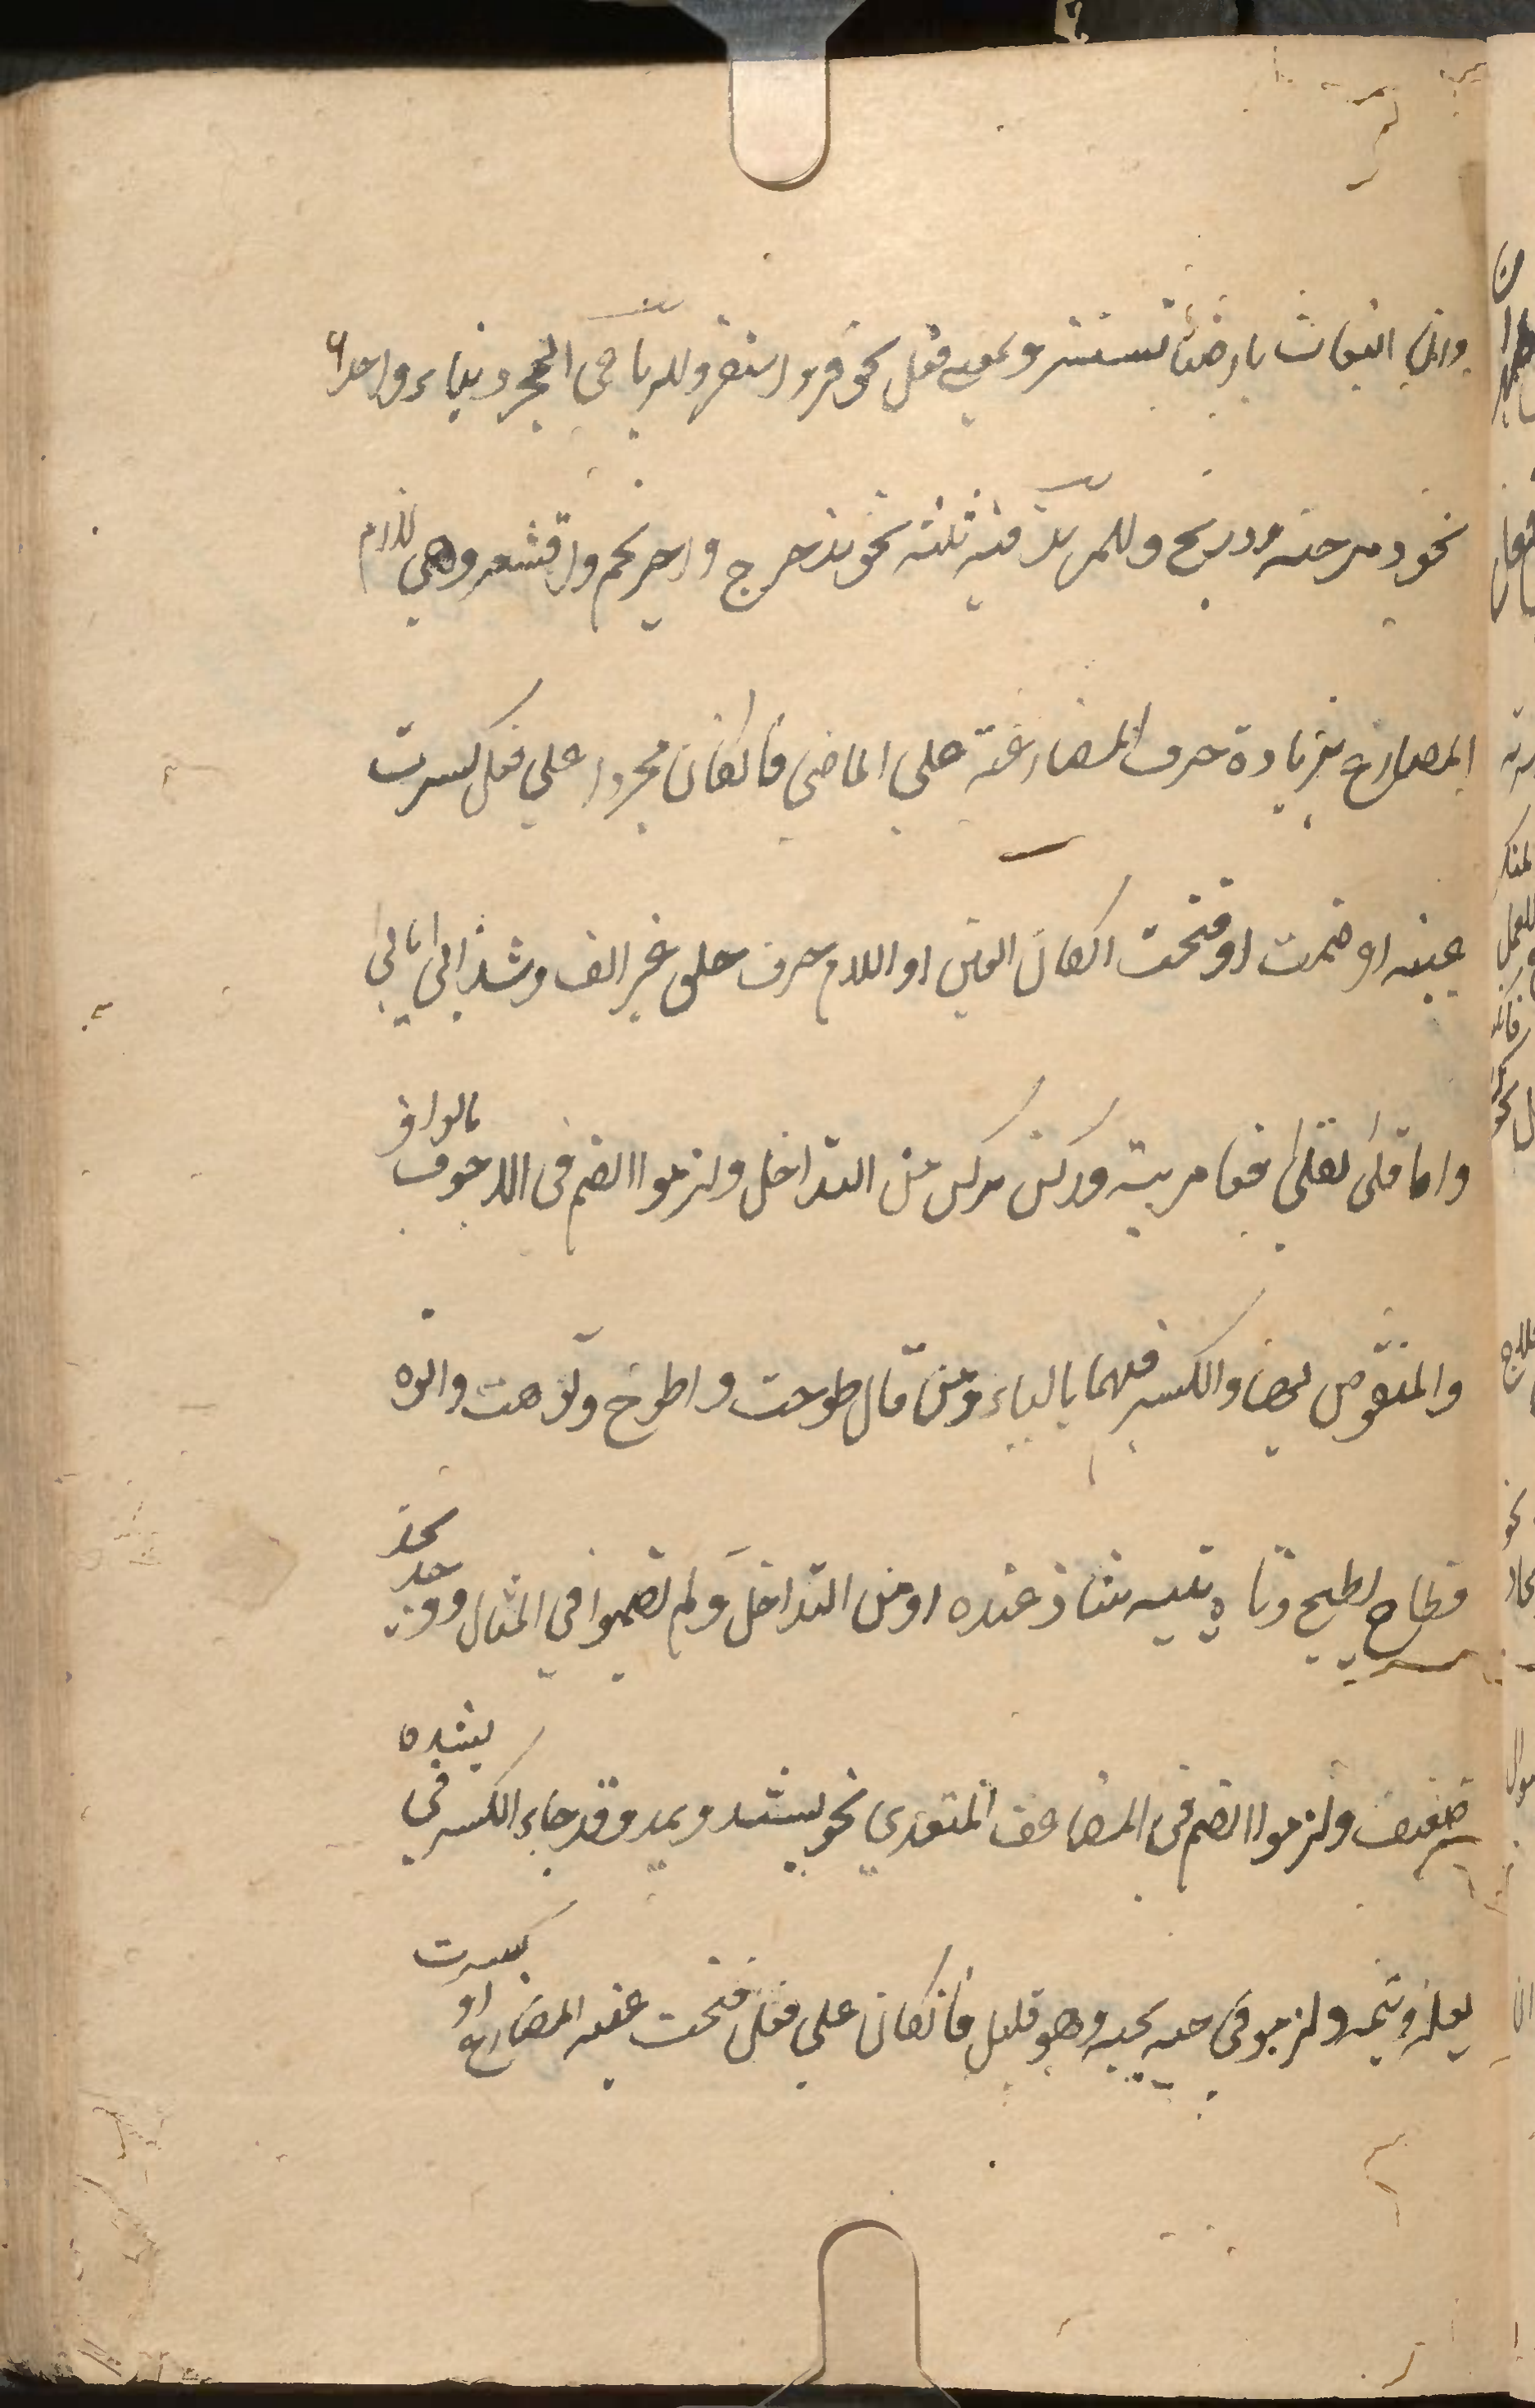 وان البغاث بارضنا تستنسر وبمعنى فعل نحو قر واستقر وللرباعي المجرد بناء واحد
نحو دحرجته ودربخ وللمزيد فيه ثلثة نحو تدحرج واحرنجم واقشعر وهي لازم
المضارع بزيادة حرف المضارعة على الماضي فانكان مجردا على فعل كسرت
عينه او ضمت او فتحت انكان العين او اللام حرف حلق غير الف وشذ ابى يابى
واما قلى يقلى فعامرية وركن يركن من التداخل ولزموا الضم فى الاجوف بالواو
والمنقوص بها والكسر فيهما بالياء ومن قال طوحت واطوح وتوهت واتوه
فطاح يطيح وتاه يتيه شاذ عنده او من التداخل ولم يضموا في المثال ووجد يجد
ضعيف ولزموا الضم فى المضاعف المتعدي نحو يشد ويمد وقد جاء الكسر في يشده
يعله وينمه ولزموه فى حبه يحبه وهو قليل فانكان على فعل فتحت عينه المضارع او كسرت